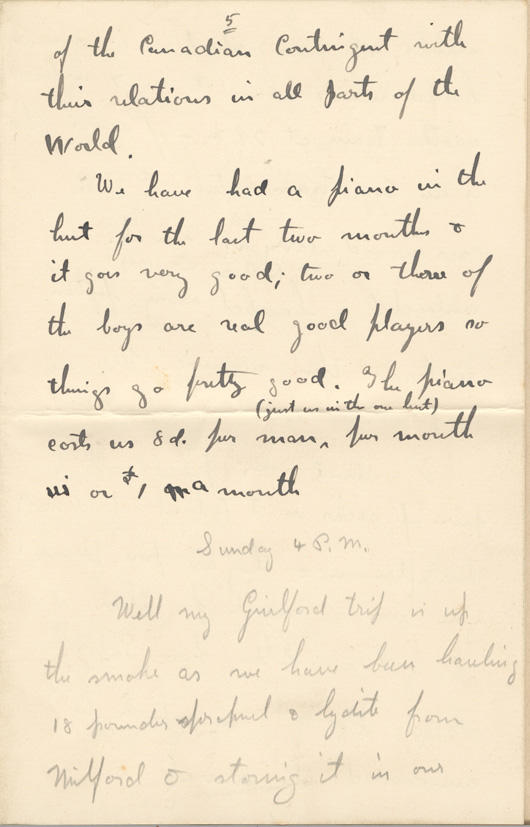 5
of the Canadian Contingent with
their relations in all parts of the
World.
We have had a piano in the
hut for the last two months &
it goes very good; two or three of
the boys are real good players so
things go pretty good. The piano
(just us in the one hut)
costs us 8d. per man, per month
or $1 a month
Sunday 4 P.M.
Well my Guilford trip is up
the smoke as we have been hauling
18 pounder & lydite from
Milford & storing it in our